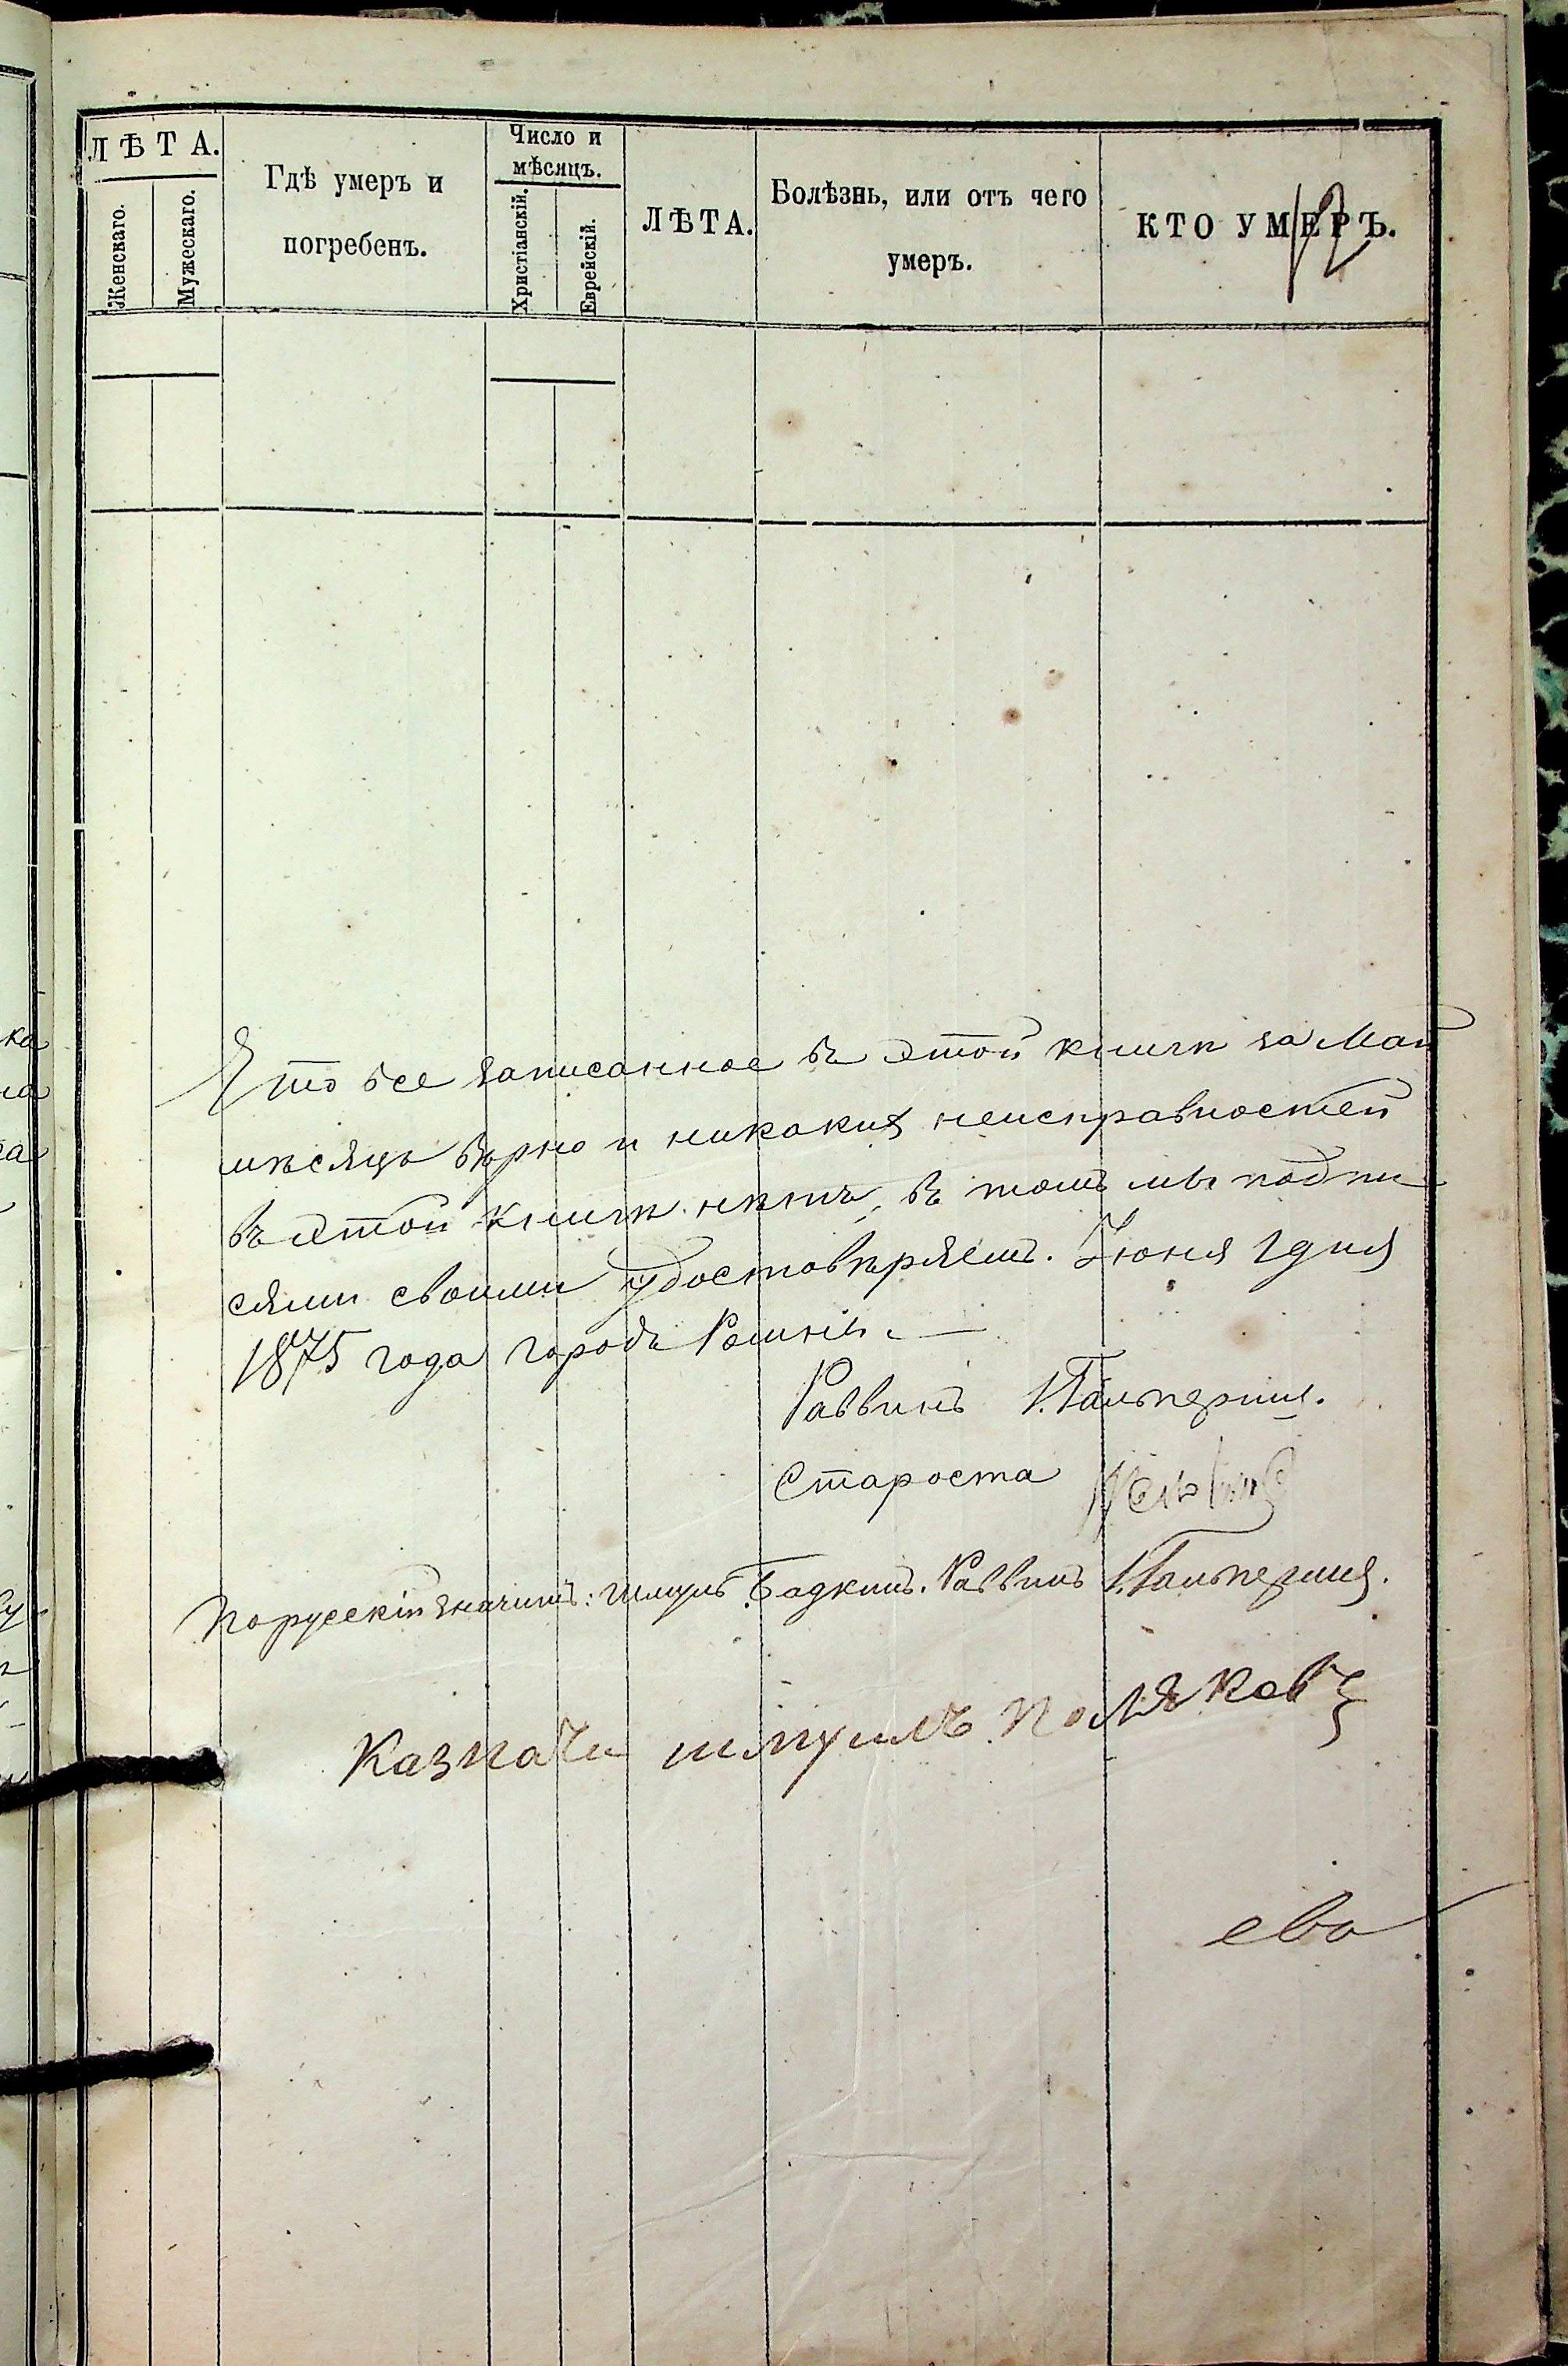 ЛѢТА.
Женскаго.
Мужескаго.
Гдѣ умеръ и
погребенъ.
Число и
мѣсяцъ.
Христіанскій.
Еврейскій.
ЛѢТА.
Болѣзнь, или отъ чего
умеръ.
КТО УМЕРЪ.
12
Что все записанное въ этой книгѣ за Май
мѣсяцъ вѣрно и никакихъ неисправностей
въ этой книгѣ нѣтъ, въ томъ мы подпи
сями своими удостовѣряемъ. Іюня 1 дня
1875 года городъ Ромны.
Раввинъ І. Гальперинъ.
Староста
Порусскій значитъ: Шмулъ Бадкинъ. Раввинъ І. Гальперинъ.
Казначи шмуилъ Поляковъ
ева